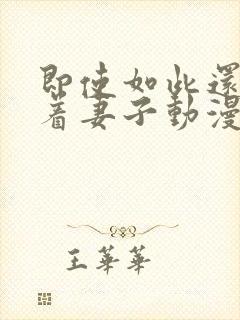 即使如此還
着妻子動漫
王華華